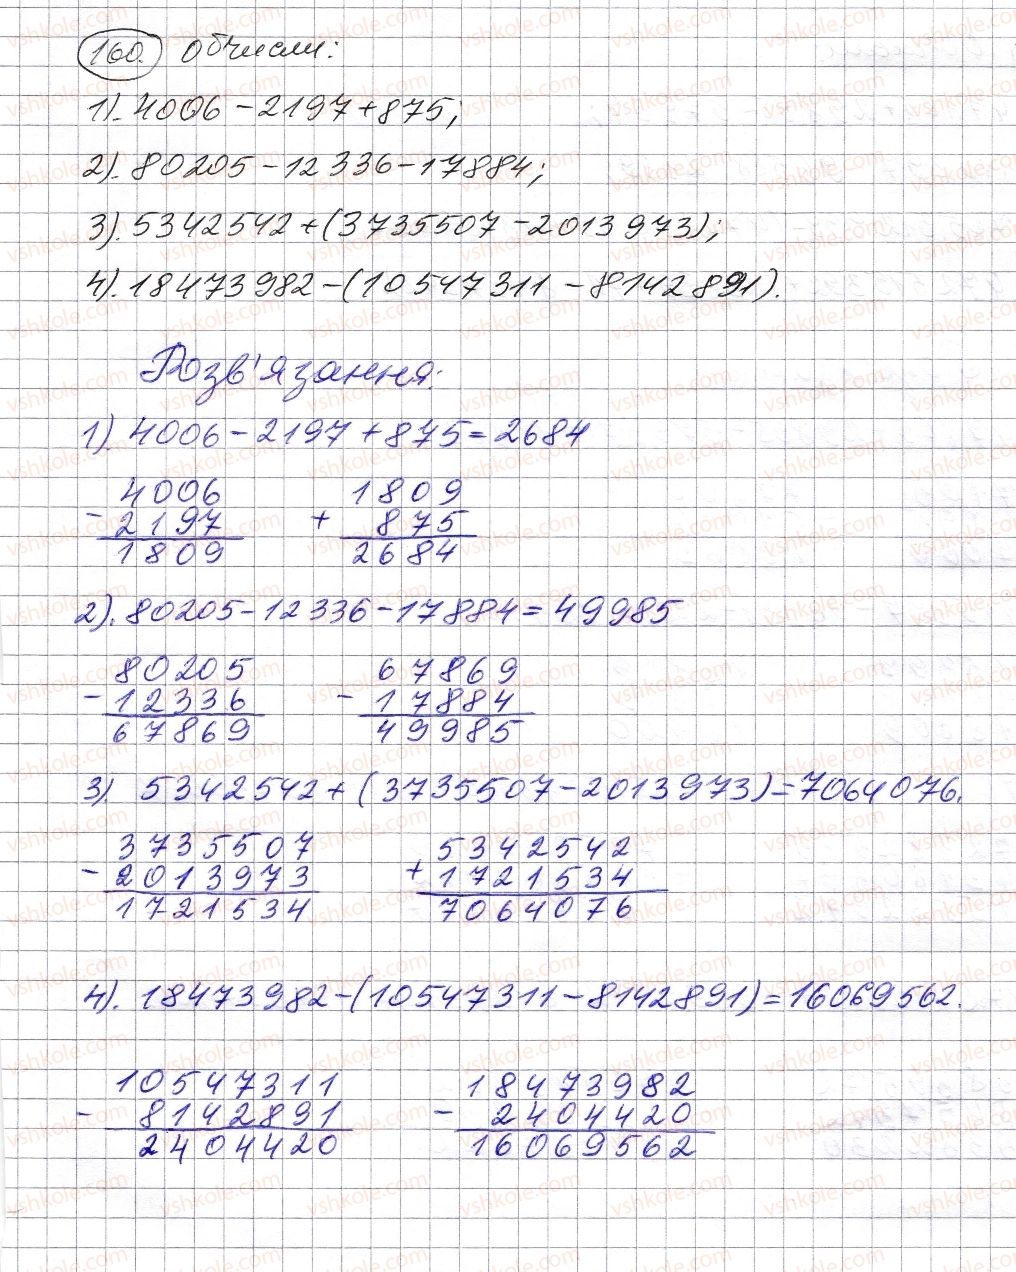 160. Обчисли:
1). 4006 - 2197 + 875;
2). 80205 - 12336 - 17884;
3). 5342542 + (3735507 - 2013973);
4). 18473982 - (10547311 - 8142891).
Розв'язання:
1). 4006 - 2197 + 875 = 2684
4006
- 2197
1809
1809
+ 875
2684
2). 80205 - 12336 - 17884 = 49985
80205
- 12336
67869
67869
- 17884
49985
3). 5342542 + (3735507 - 2013973) = 7064076.
3735507
- 2013973
1721534
5342542
+ 1721534
7064076
4). 18473982 - (10547311 - 8142891) = 16069562.
10547311
- 8142891
2404420
18473982
- 2404420
16069562
vshkole.com